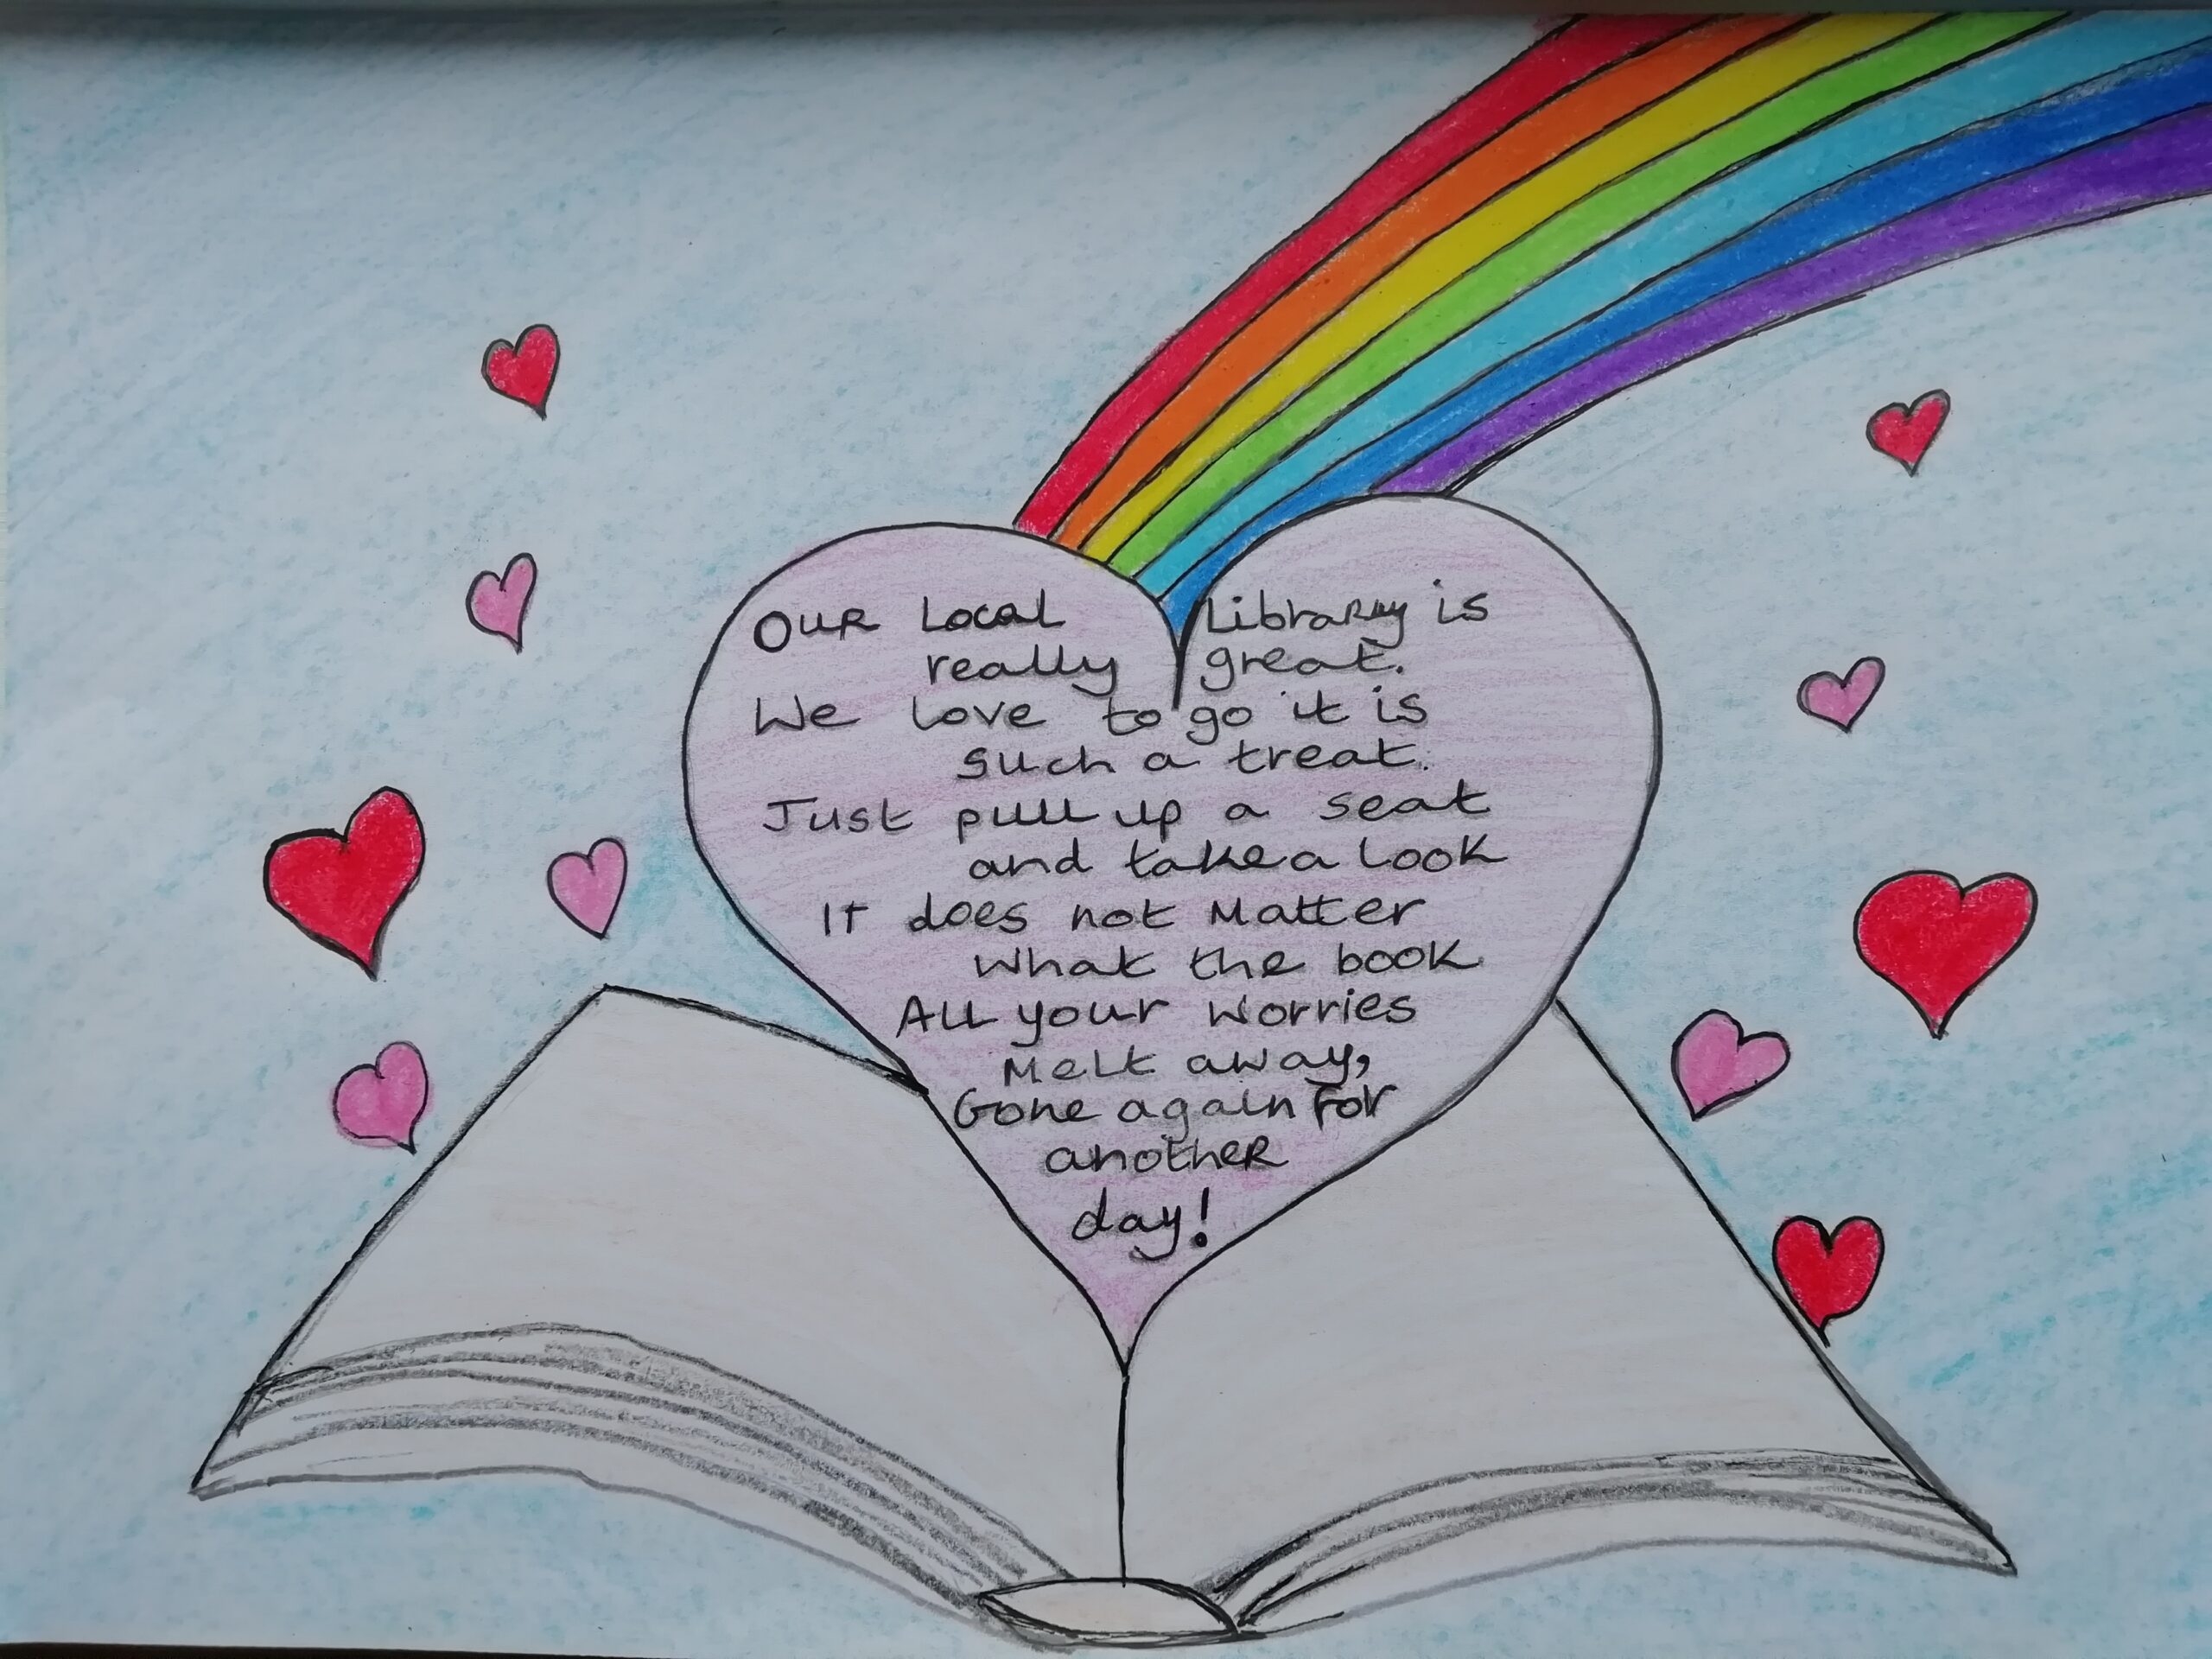 Our Local Library is
really great.
We love to go it is
such a treat.
Just pull up a seat
and take a look
It does not Matter
What the book
All your Worries
Melt away,
Gone again For
another
day!